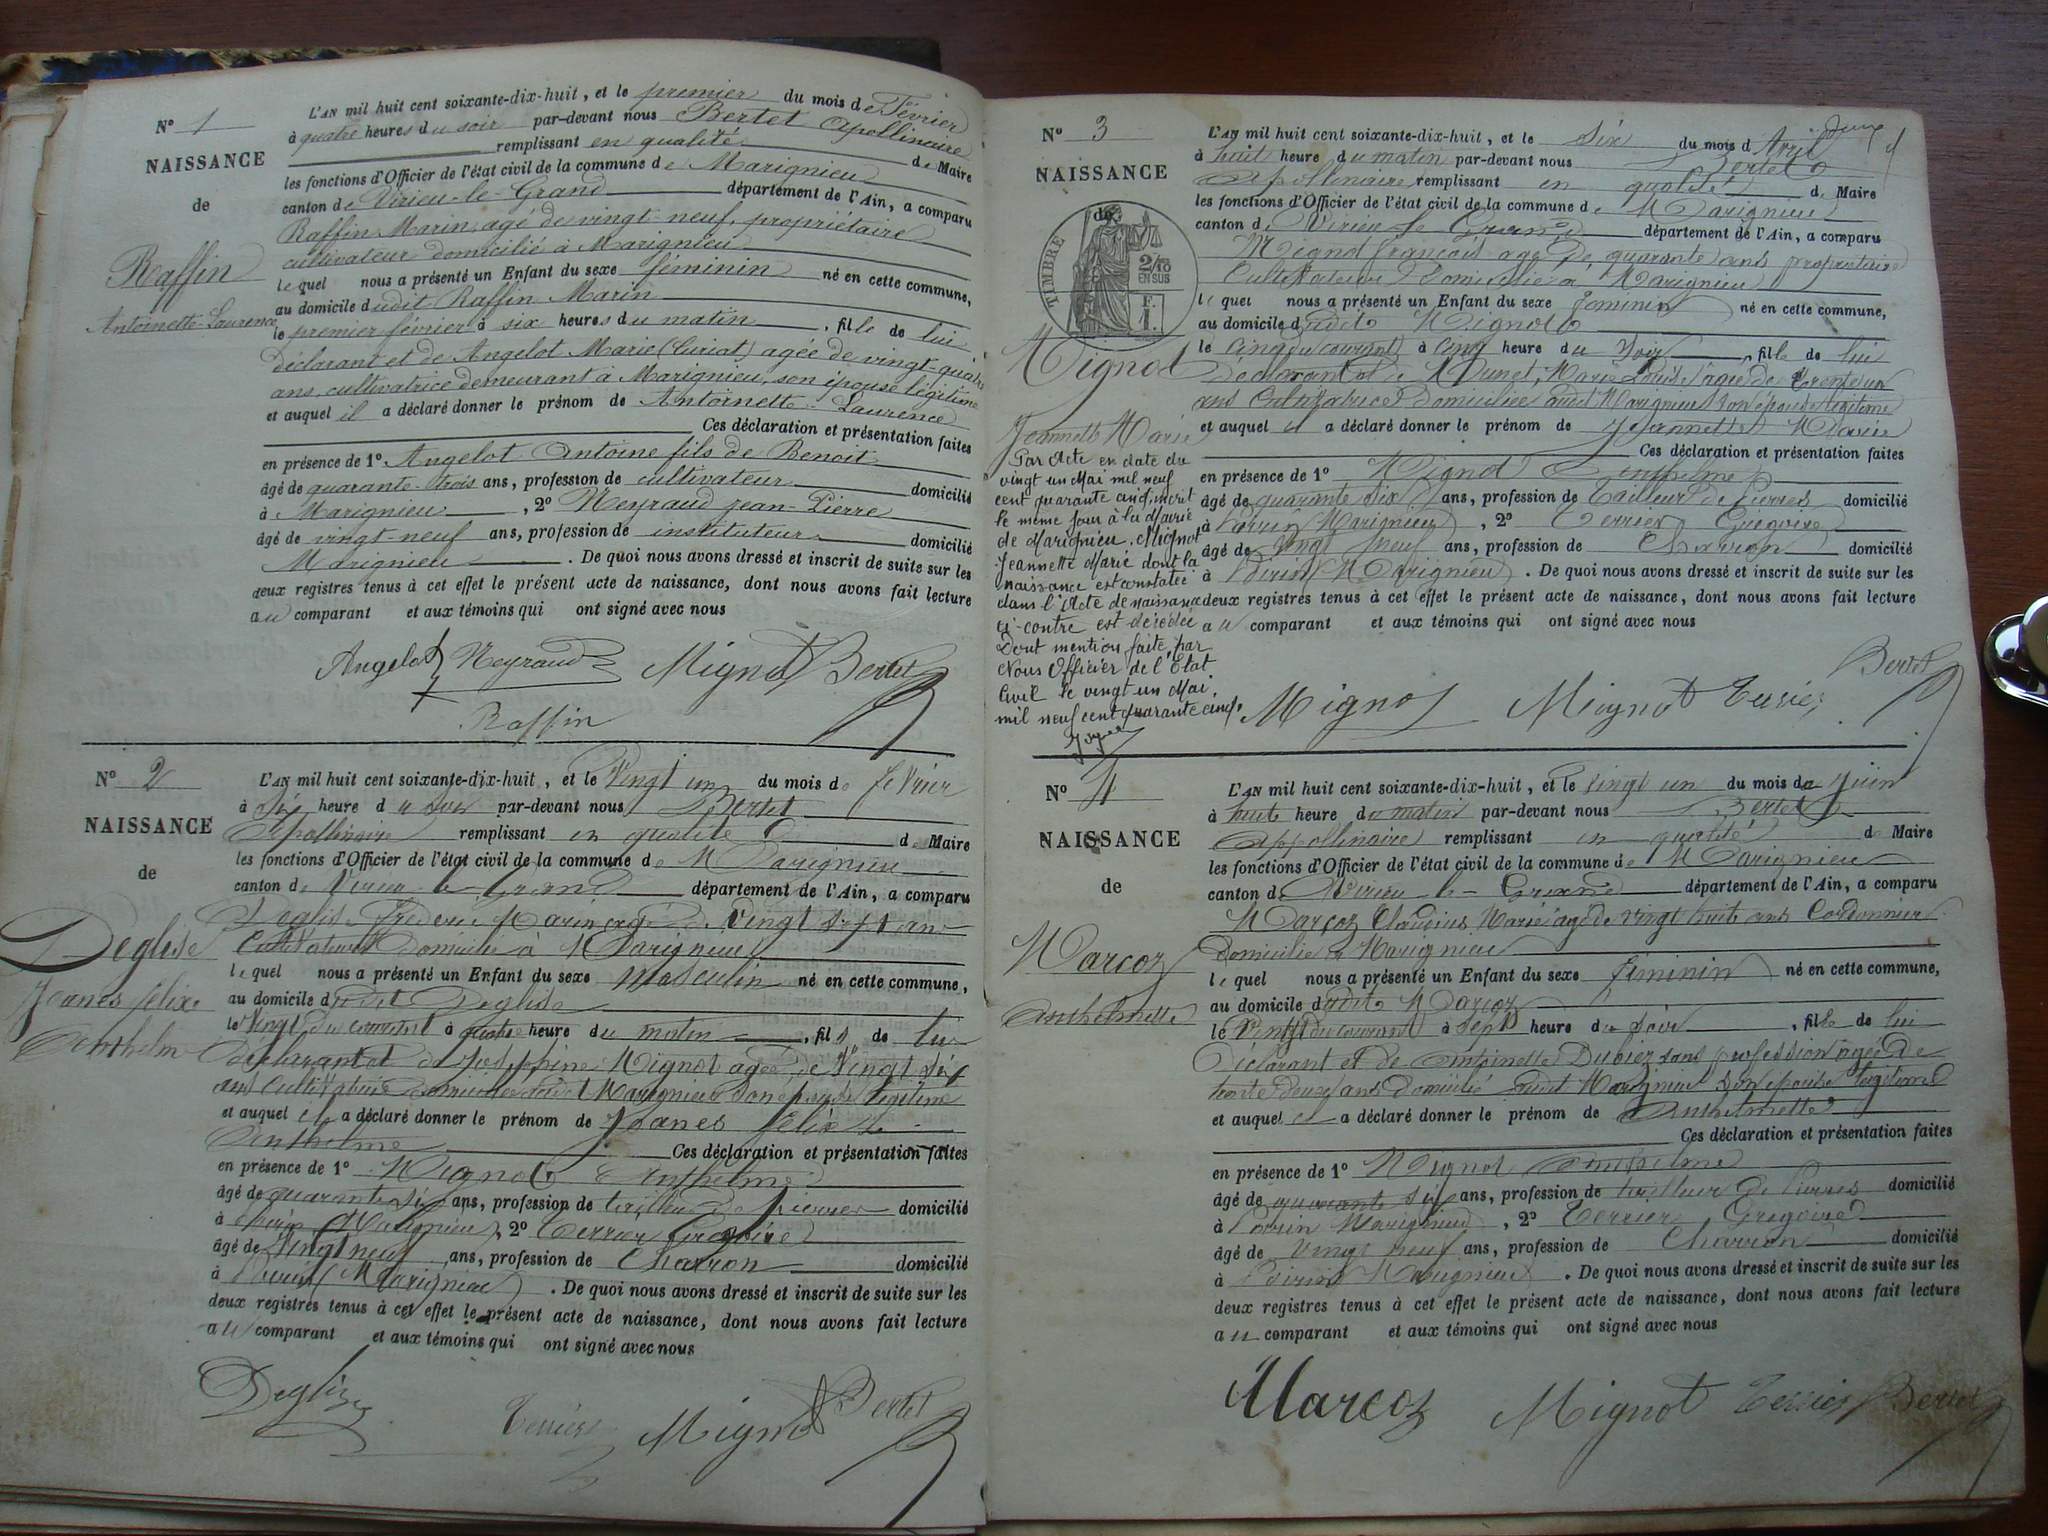 N° 1
NAISSANCE
de
Raffin
Antoinette Laurence
L'AN mil huit cent soixante-dix-huit, et le premier du mois de Février
à quatre heures du soir par-devant nous Bertet Apollinaire
remplissant en qualité de Maire
les fonctions d'Officier de l'état civil de la commune de Marignieu
canton de Virieu-le-Grand département de l'Ain, a comparu
Raffin Marin, agé de vingt-neuf, propriétaire
cultivateur domicilié à Marignieu
lequel nous a présenté un Enfant du sexe féminin né en cette commune,
au domicile dudit Raffin Marin
le premier février à six heures du matin, fille de lui
déclarant et de Angelot Marie (Curiat) agée de vingt-quatre
ans, cultivatrice demeurant à Marignieu, son épouse légitime
et auquel il a déclaré donner le prénom de Antoinette-Laurence
Ces déclaration et présentation faites
en présence de 1° Angelot Antoine fils de Benoit
âgé de quarante-trois ans, profession de cultivateur domicilié
à Marignieu, 2° Neyraud Jean-Pierre
âgé de vingt-neuf ans, profession de instituteur domicilié
Marignieu. De quoi nous avons dressé et inscrit de suite sur les
deux registres tenus à cet effet le présent acte de naissance, dont nous avons fait lecture
au comparant et aux témoins qui ont signé avec nous
Angelot Neyraud Mignot Bertet
Raffin
N° 2
NAISSANCE
de
Deglise
Joanes félix
Anthelm
L'AN mil huit cent soixante-dix-huit, et le Vingt un du mois de fevrier
à six heure du soir par-devant nous Bertet
Apollinaire remplissant en qualité de Maire
les fonctions d'Officier de l'état civil de la commune de Marignieu
canton de Virieu le Grand département de l'Ain, a comparu
Deglise Frederic Marin agé de Vingt sept ans
Cultivateur Domicilié à Marignieu
lequel nous a présenté un Enfant du sexe masculin né en cette commune,
au domicile dudit Deglise
le Vingt du courant à quatre heure du matin, fils de lui
déclarant et de Josephine Mignot agée de Vingt six
ans Cultivatrice domiciliée audit Marignieu Son épouse légitime
et auquel il a déclaré donner le prénom de Joanes félix
Anthelme Ces déclaration et présentation faites
en présence de 1° Mignot Anthelme
âgé de quarante six ans, profession de tailleur de pierres domicilié
à Marignieu, 2° Terrier Gregoire
âgé de Vingt neuf ans, profession de Charron domicilié
à Marignieu. De quoi nous avons dressé et inscrit de suite sur les
deux registres tenus à cet effet le présent acte de naissance, dont nous avons fait lecture
au comparant et aux témoins qui ont signé avec nous
Deglise Terrier Mignot Bertet
N° 3
NAISSANCE
de
TIMBRE
2/10
EN SUS
F.
1.
Mignot
Jeannette Marie
Par Acte en date du
vingt un Mai mil neuf
cent quarante cinq, inscrit
le même jour à la Mairie
de Marignieu, Mignot
Jeannette Marie dont la
naissance est constatée
dans l'Acte de naissance
ci-contre est décédée
Dont mention faite par
Nous Officier de l'Etat
Civil le vingt un Mai,
mil neuf cent quarante cinq.
L'AN mil huit cent soixante-dix-huit, et le Six du mois d'Avril
à huit heure du matin par-devant nous Bertet
Appollinaire remplissant en qualité de Maire
les fonctions d'Officier de l'état civil de la commune de Marignieu
canton de Virieu le Grand département de l'Ain, a comparu
Mignot françois agé de quarante ans propriétaire
Cultivateur Domicilié à Marignieu
lequel nous a présenté un Enfant du sexe feminin né en cette commune,
au domicile dudit Mignot
le cinq du courant à cinq heure du soir, fille de lui
déclarant et de Munet, Marie Louise agée de trente un
ans Cultivatrice Domiciliée audit Marignieu Son épouse légitime
et auquel il a déclaré donner le prénom de Jeannette Marie
Ces déclaration et présentation faites
en présence de 1° Mignot Anthelme
âgé de quarante six ans, profession de Tailleur de Pierres domicilié
à Marignieu, 2° Terrier Gregoire
âgé de Vingt neuf ans, profession de Charron domicilié
à Marignieu. De quoi nous avons dressé et inscrit de suite sur les
deux registres tenus à cet effet le présent acte de naissance, dont nous avons fait lecture
au comparant et aux témoins qui ont signé avec nous
Bertet
Mignot Mignot Terrier
N° 4
NAISSANCE
de
Marcoz
Anthelmette
L'AN mil huit cent soixante-dix-huit, et le Vingt un du mois de Juin
à huite heure du matin par-devant nous Bertet
Appollinaire remplissant en qualité de Maire
les fonctions d'Officier de l'état civil de la commune de Marignieu
canton de Virieu le Grand département de l'Ain, a comparu
Marcoz Claudius Marie agé de vingt huit ans Cordonnier
Domicilié à Marignieu
lequel nous a présenté un Enfant du sexe féminin né en cette commune,
au domicile dudit Marcoz
le Vingt du courant à sept heure du soir, fille de lui
Déclarant et de Antoinette Dubiez sans profession agée de
trente deux ans domicilié audit Marignieu son épouse légitime
et auquel il a déclaré donner le prénom de Anthelmette
Ces déclaration et présentation faites
en présence de 1° Mignot Anthelme
âgé de quarante six ans, profession de tailleur de Pierres domicilié
à Marignieu, 2° Terrier Gregoire
âgé de Vingt neuf ans, profession de Charron domicilié
à Marignieu. De quoi nous avons dressé et inscrit de suite sur les
deux registres tenus à cet effet le présent acte de naissance, dont nous avons fait lecture
au comparant et aux témoins qui ont signé avec nous
Marcoz Mignot Terrier Bertet